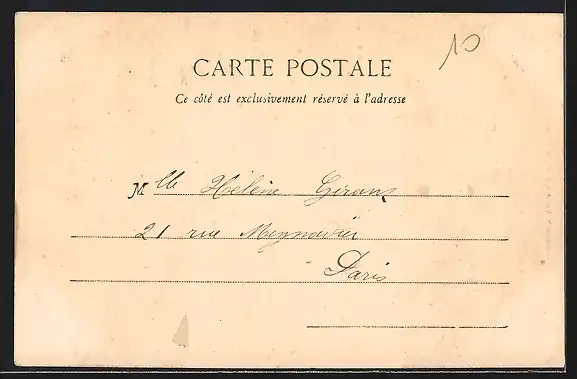 10
CARTE POSTALE
Ce côté est exclusivement réservé à l'adresse
Mlle Hélène
21 rue
Paris